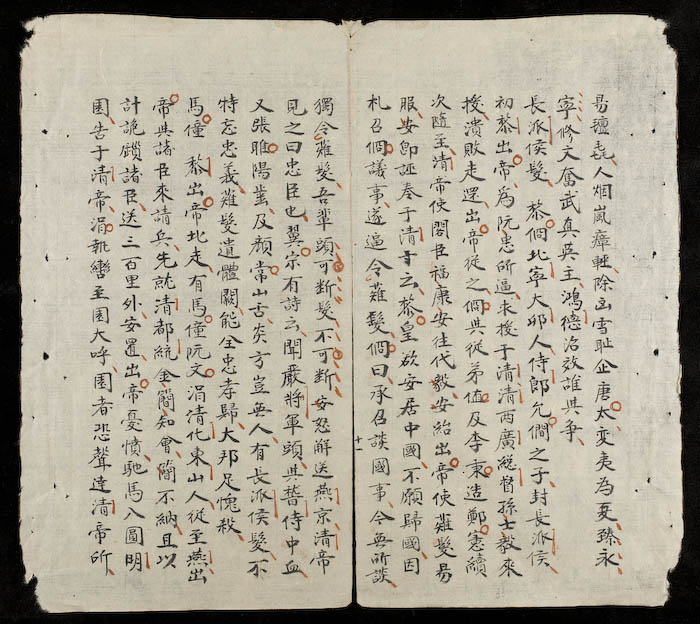 易壇㐂人烟嵐瘴輕除凶雪耻企唐太变夷為夏臻永
寧修文奮武真英主鴻德治效誰與争
長派侯髮 黎侗北寧大卯人侍郎允僩之子封長派侯
初黎出帝為阮惠所逼求援于清清两廣総督孫士毅來
援潰敗走還出帝從之侗與從弟值及李秉造鄭憲續
次隨至清帝使閣臣福康安往代毅安紿出帝使薙髮易
服安即誣奏于清主云黎皇欲安居中國不願歸國因
札召侗議事遂逼令薙髮侗曰承召談國事今無所談
十一
獨令薙髮吾輩頭可断髮不可断安怒解送燕京清帝
見之曰忠臣也翼宗有詩云聞嚴將軍頭與嵇侍中血
又張睢陽齒及顏常山舌炎方豈無人有長派侯髮不
特忘忠義薙髮遺體關能全忠孝歸大邦足愧殺
馬僮 黎出帝北走有馬僮阮文涓清化東山人從至燕出
帝與諸臣來請兵先就清都統金簡知會簡不納且以
計詭鎖諸臣送三百里外安置出帝憂憤馳馬入圓明
園告于清帝涓執轡至園大呼園者恐聲達清帝所